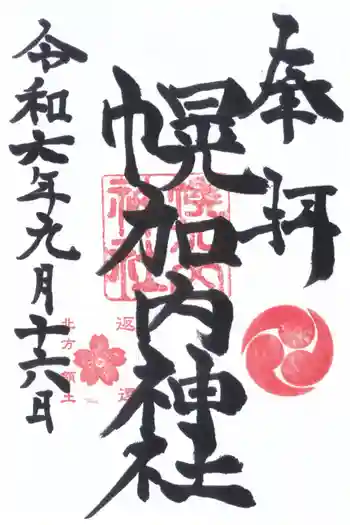 奉拝
幌加内神社
幌加内
神社
令和六年九月十六日
返還
北方領土